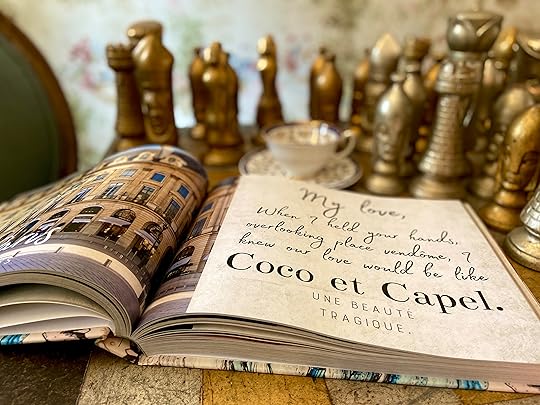 My love,
When I held your hands,
overlooking place vendome, I
knew our love would be like
Coco et Capel.
UNE BEAUTÉ
TRAGIQUE.